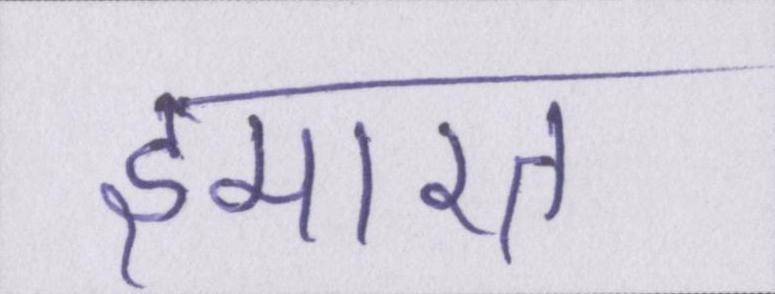 इमारत